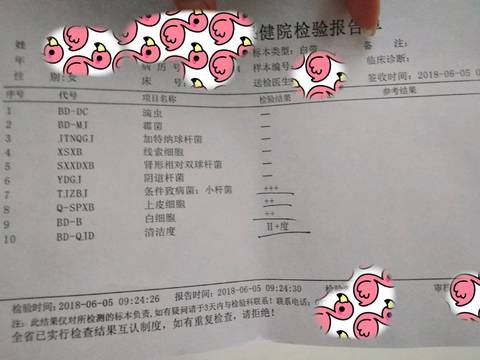 健院检验报告单
姓
标本类型:白带 备 注:
年 病历号 标本编号 临床诊断:
性 别:女 床 号 送检医生 签收时间:2018-06-05 0
序号 代号 项目名称 检验结果 参考结果
1 BD-DC 滴虫 —
2 BD-MJ 霉菌 —
3 JTNQGJ 加特纳球杆菌 —
4 XSXB 线索细胞 —
5 SXXDXB 肾形相对双球杆菌 —
6 YDGJ 阴道杆菌 —
7 TJZBJ 条件致病菌:小杆菌 +++
8 Q-SPXB 上皮细胞 ++
9 BD-B 白细胞 ++
10 BD-QJD 清洁度 Ⅱ+度
检验时间:2018-06-05 09:24:26 报告时间:2018-06-05 09:24:30 检验 审核
注: 此结果仅对所检测的标本负责,如有疑问请于3天内与检验科联系!联系电话:
全省已实行检查结果互认制度,如有重复检查,请拒绝!